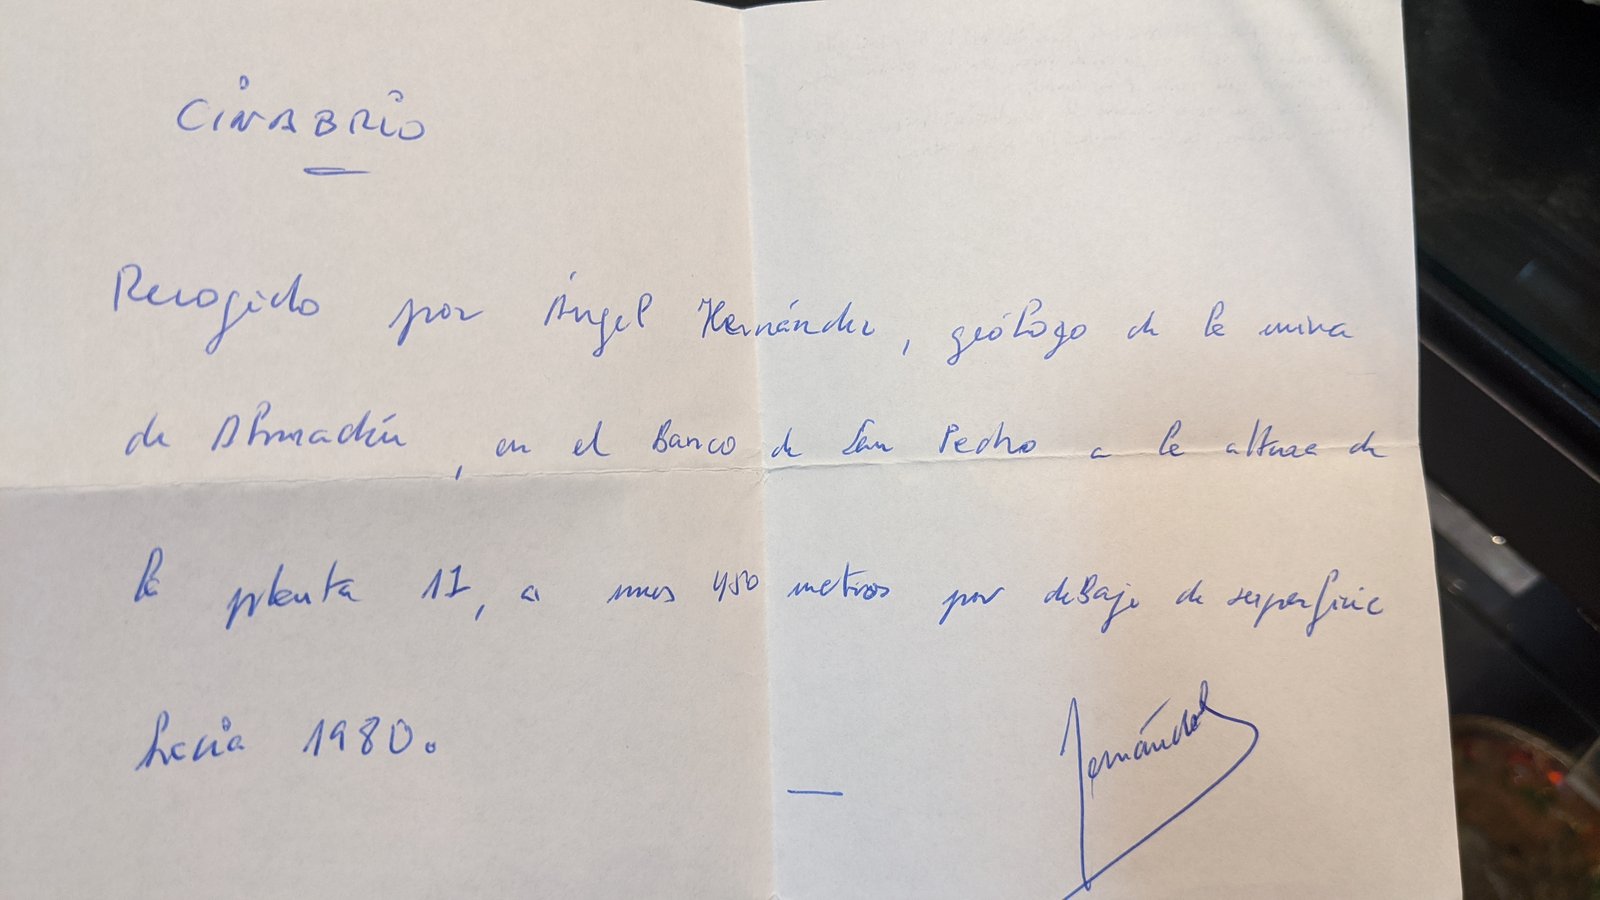 CINABRIO
Recogido por Ángel Hernández, geólogo de la mina
de Almadén, en el Banco de San Pedro a la altura de
la planta 11, a unos 450 metros por debajo de superficie
hacia 1980.
Hernández